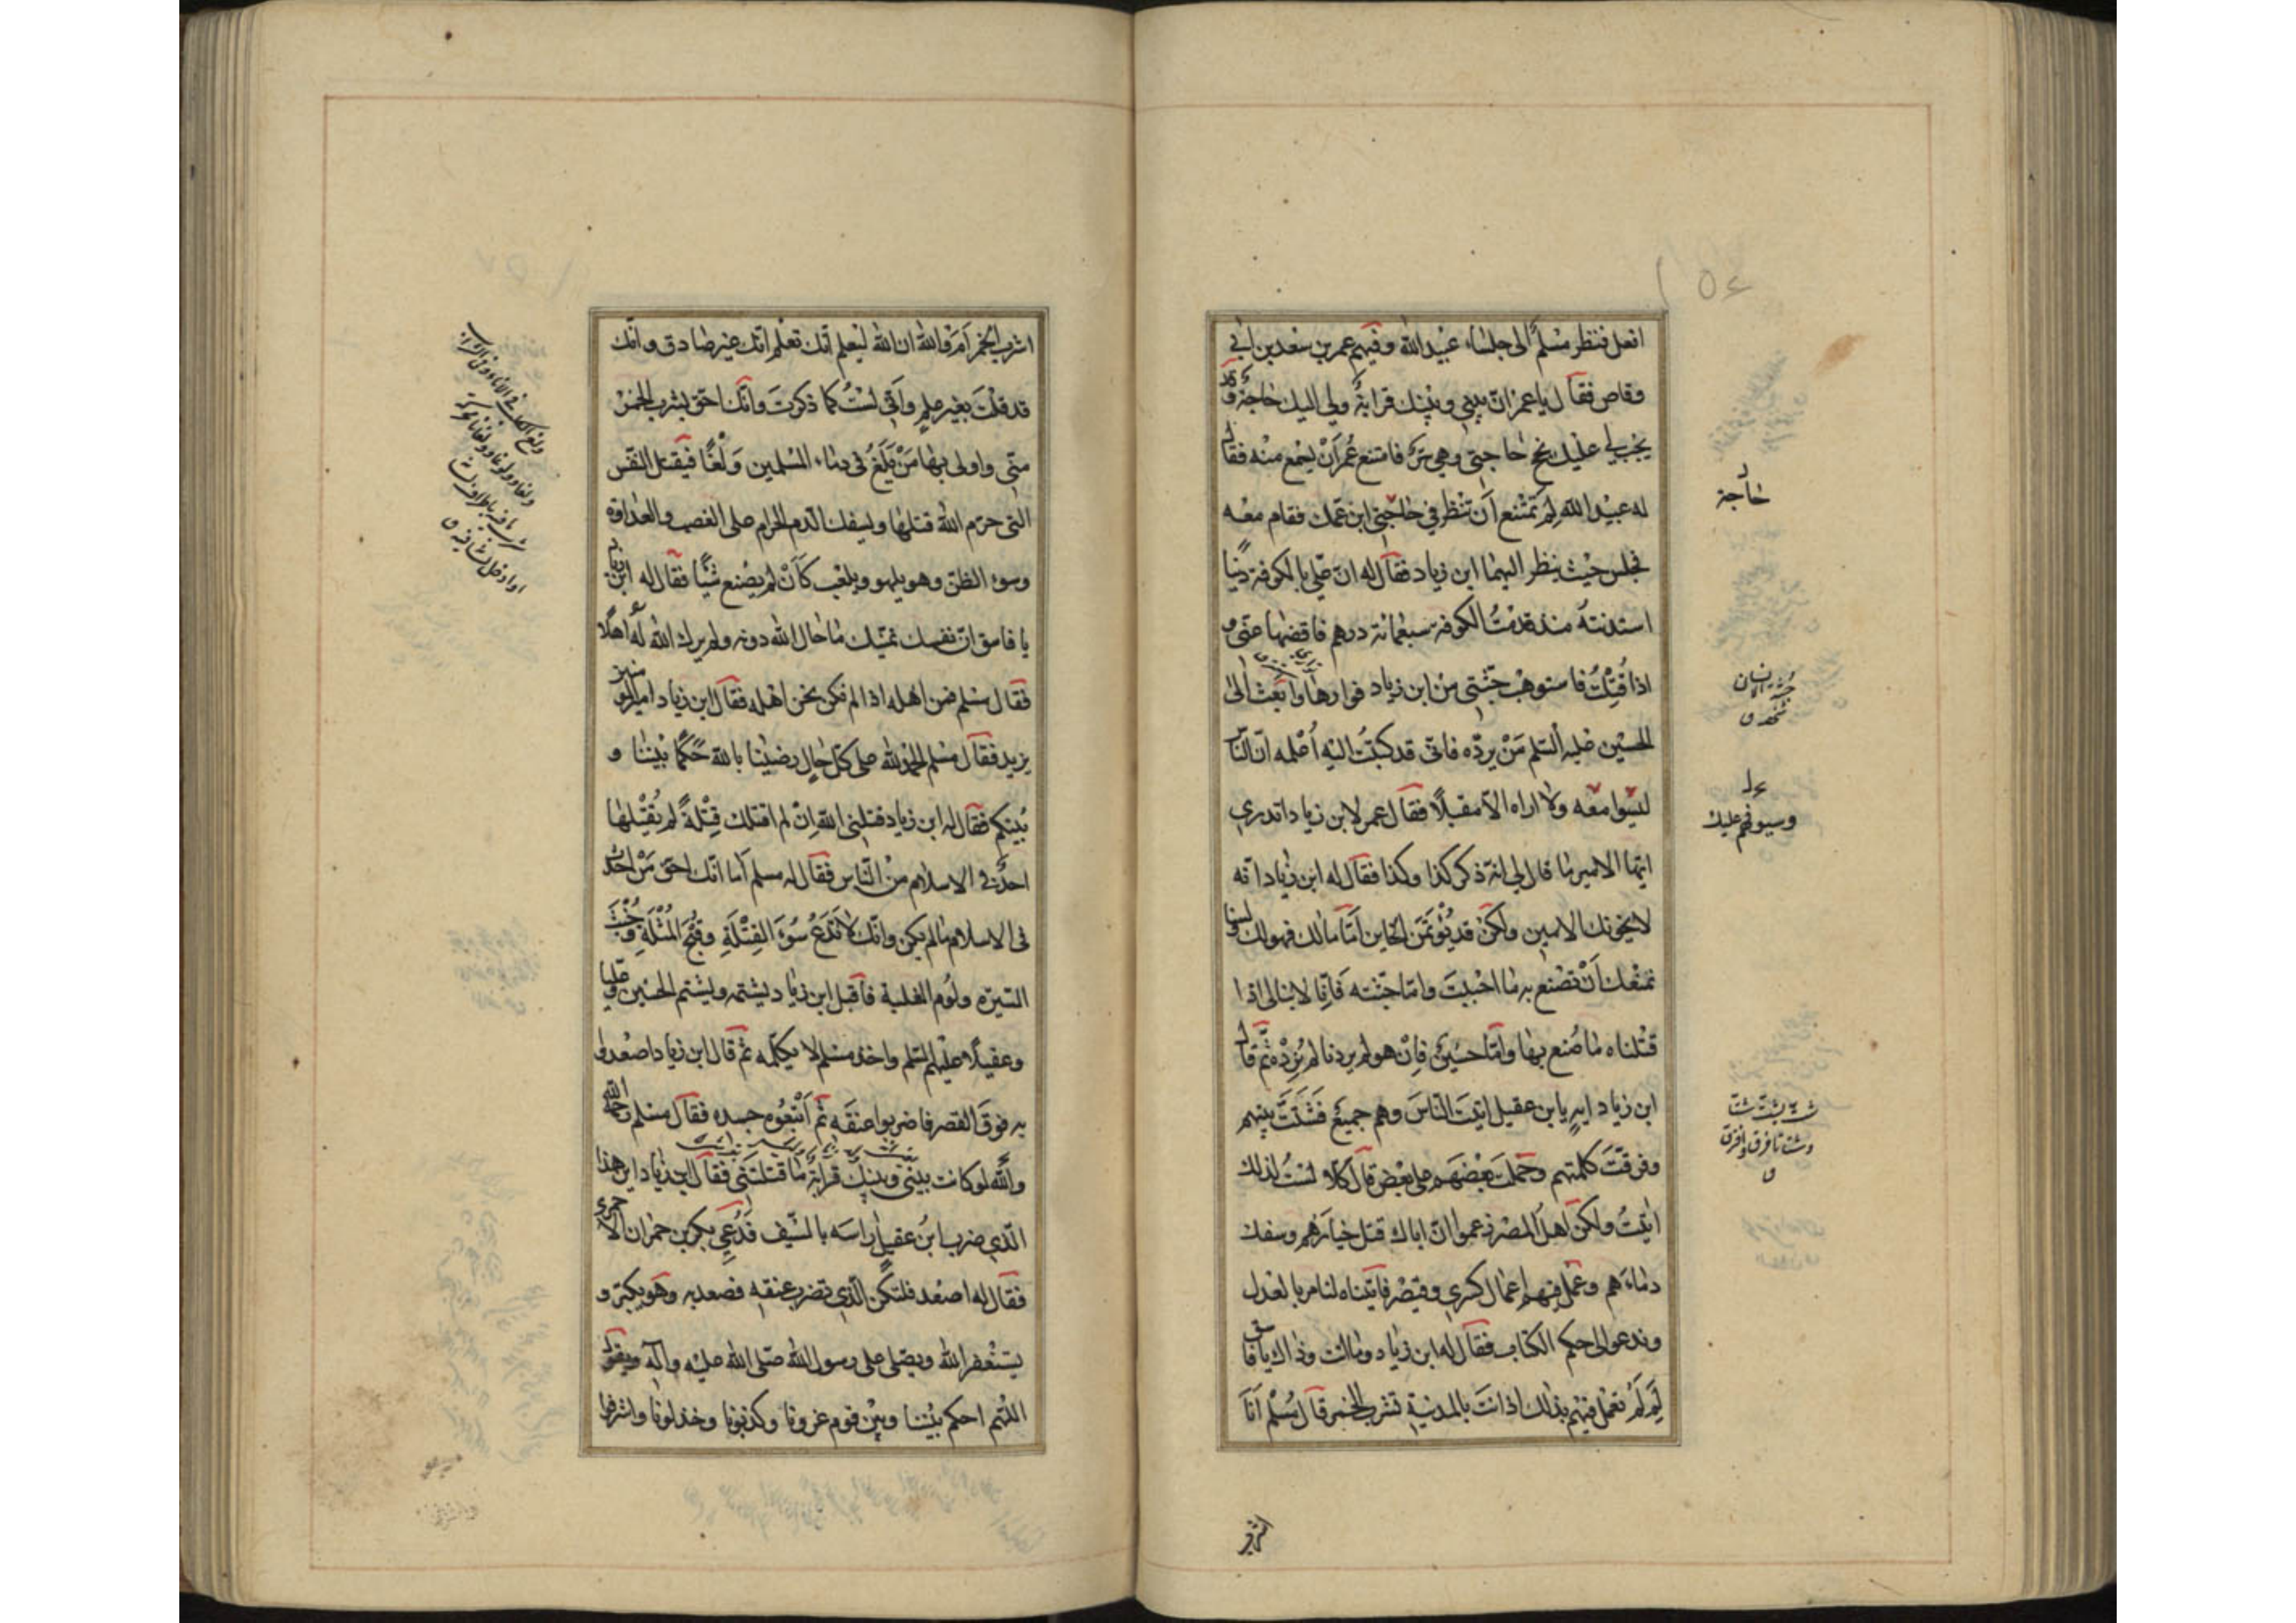 افعل فنظر مسلم الى جلساء عبيد الله وفيهم عمر بن سعد بن ابى
وقاص فقال يا عمر ان بينى وبينك قرابة ولى اليك حاجة وقد
يجب لى عليك نجح حاجتى وهى سر فامتنع عمر أن يسمع منه فقال
له عبيد الله لم تمتنع أن تنظر فى حاجة ابن عمك فقام معه
فجلس حيث ينظر اليهما ابن زياد فقال له ان علي بالكوفة دينًا
استدنته منذ قدمت الكوفة سبعمائة درهم فاقضها عنى و
اذا قتلت فاستوهب جثتى من ابن زياد فوارها وابعث الى
الحسين عليه السلم من يرده فانى قد كتبت اليه أعلمه ان الناس
ليسوا معه ولا اراه الا مقبلًا فقال عمر لابن زياد اتدرى
ايها الامير ما قال لى انه ذكر كذا وكذا فقال له ابن زياد انه
لا يخونك الامين ولكن قد يؤتمن الخاين أمّا مالك فهو لك ولسنا
نمنعك أن تصنع به ما احببت وامّا جثته فانّا لا نبالى اذا
قتلناه ما صنع بها وامّا حسين فان هو لم يردنا لم نرده ثم قال
ابن زياد ايه يابن عقيل اتيت الناس وهم جميع فشتّت بينهم
وفرقت كلمتهم وحملت بعضهم على بعض قال كلا لست لذلك
اتيت ولكن اهل المصر زعموا ان اباك قتل خيارهم وسفك
دماءهم وعمل فيهم اعمال كسرى وقيصر فاتيناه لنامر بالعدل
وندعو الى حكم الكتاب فقال له ابن زياد وما انت وذاك يا فاسق
لم لم تعمل فيهم بذلك اذ انت بالمدينة تشرب الخمر قال مسلم أنا
حاجة
جثة الانسان
شخصه
وسيوفهم عليك
شته يشته شتا
وشتاتا فرق وافترق
اشرب
اشرب الخمر أمَ والله ان الله ليعلم أنك تعلم انك غير صادق وانك
قد قلت بغير علم وانى لست كما ذكرت وانك احق بشرب الخمر
منى واولى بها من يلغ فى دماء المسلمين ولغًا فيقتل النفس
التى حرم الله قتلها ويسفك الدم الحرام على الغصب والعداوة
وسوء الظن وهو يلهو ويلعب كأن لم يصنع شيئًا فقال له ابن زياد
يا فاسق ان نفسك تمنيك ما حال الله دونه ولم يرك الله له اهلًا
فقال مسلم فمن اهله اذا لم نكن نحن اهله فقال ابن زياد امير المؤمنين
يزيد فقال مسلم الحمد لله على كل حال رضينا بالله حكمًا بيننا و
بينكم فقال له ابن زياد قتلنى الله ان لم اقتلك قتلة لم يقتلها
احد فى الاسلام من الناس فقال له مسلم أما انك احق من احدث
فى الاسلام ما لم يكن وانك لا تدع سوء القتلة وقبح المثلة وخبث
السيرة ولوم الغلبة فاقبل ابن زياد يشتمه ويشتم الحسين وعليا
وعقيلًا عليهم السلم واخذ مسلم لا يكلمه ثم قال ابن زياد اصعدوا
به فوق القصر فاضربوا عنقه ثم أتبعوه جسده فقال مسلم رحمه الله
والله لو كانت بينى وبينك قرابة ما قتلتنى فقال ابن زياد اين هذا
الذى ضرب ابن عقيل راسه بالسيف فدعى بكر بن حمران الاحمرى
فقال له اصعد فلتكن الذى تضرب عنقه فصعد به وهو يكبر و
يستغفر الله ويصلى على رسول الله صلى الله عليه وآله ويقول
اللهم احكم بيننا وبين قوم غرونا وكذبونا وخذلونا واشرفوا